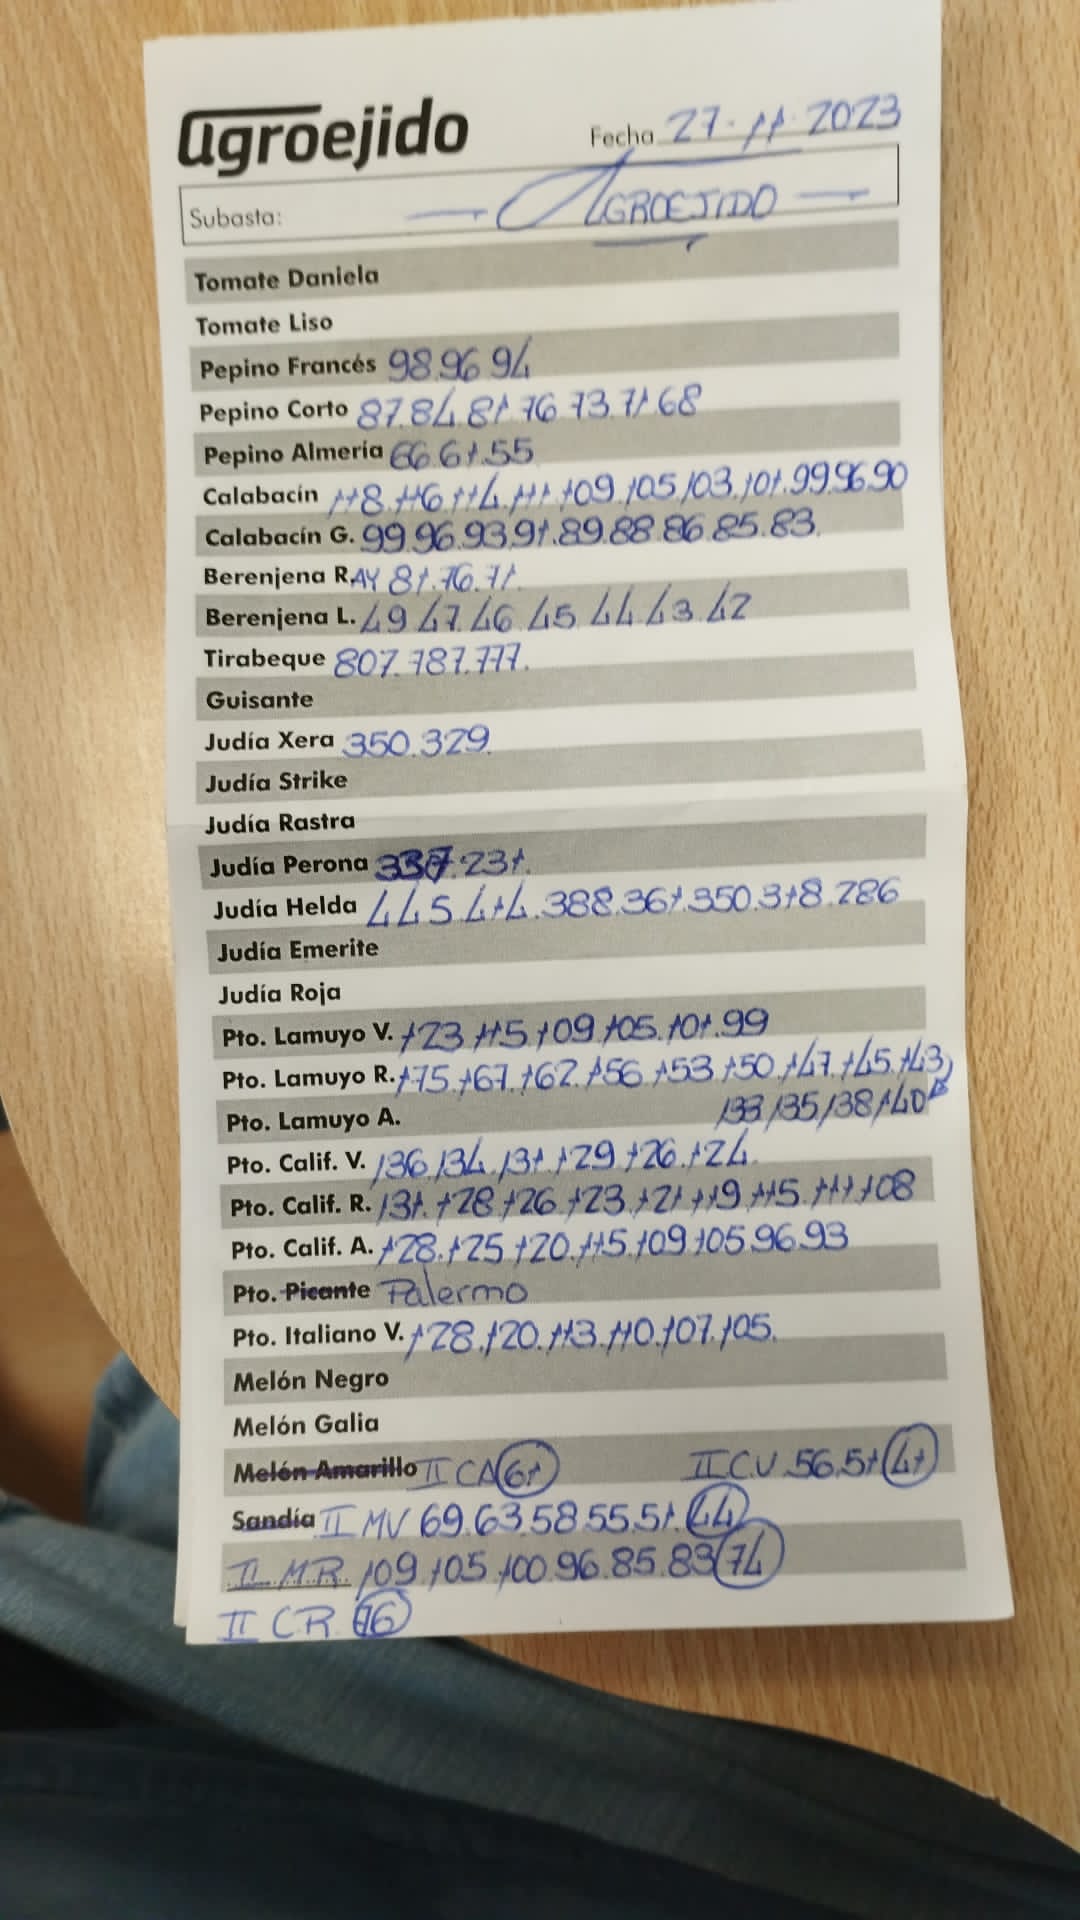 agroejido
Fecha 27.11.2023
Subasta: — AGROEJIDO —
Tomate Daniela
Tomate Liso
Pepino Francés 98.96 94
Pepino Corto 87.84.81 76 73.71.68
Pepino Almería 66.61.55
Calabacín 118.116.114.111.109.105.103.101.99.96.90
Calabacín G. 99.96.93.91.89.88.86.85.83.
Berenjena R.AY 81.76.71.
Berenjena L. 49 47.46.45 44.43.42
Tirabeque 807.787.777.
Guisante
Judía Xera 350.329
Judía Strike
Judía Rastra
Judía Perona 337.231.
Judía Helda 445.414.388.361.350.318.286
Judía Emerite
Judía Roja
Pto. Lamuyo V. 123.115.109.105.101.99
Pto. Lamuyo R. 175.167.162.156.153.150.147.145.143
Pto. Lamuyo A. 133/135/138/140
Pto. Calif. V. 136.134.131.129.126.124.
Pto. Calif. R. 131.128.126.123.121.119.115.111.108
Pto. Calif. A. 128.125.120.115.109.105.96.93
Pto. Picante Palermo
Pto. Italiano V. 128.120.113.110.107.105.
Melón Negro
Melón Galia
Melón Amarillo II CA 61 II CV 56.51 41
Sandía II MV 69.63.58.55.51.44
II MR 109.105.100.96.85.83 74
II CR 76